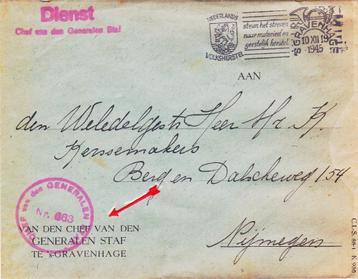 Dienst
Chef van den Generalen Staf
NEDERLANDS
VOLKSHERSTEL
steun het streven
naar materieel en
geestelijk herstel
'S GRAVENHAGE
10.XII 19
1945
AAN
den Weledelgestr Heer
Kerssemakers
Berg en Dalscheweg 154
Nijmegen
CHEF van den GENERALEN
Nr. 663
VAN DEN CHEF VAN DEN
GENERALEN STAF
TE 'S-GRAVENHAGE